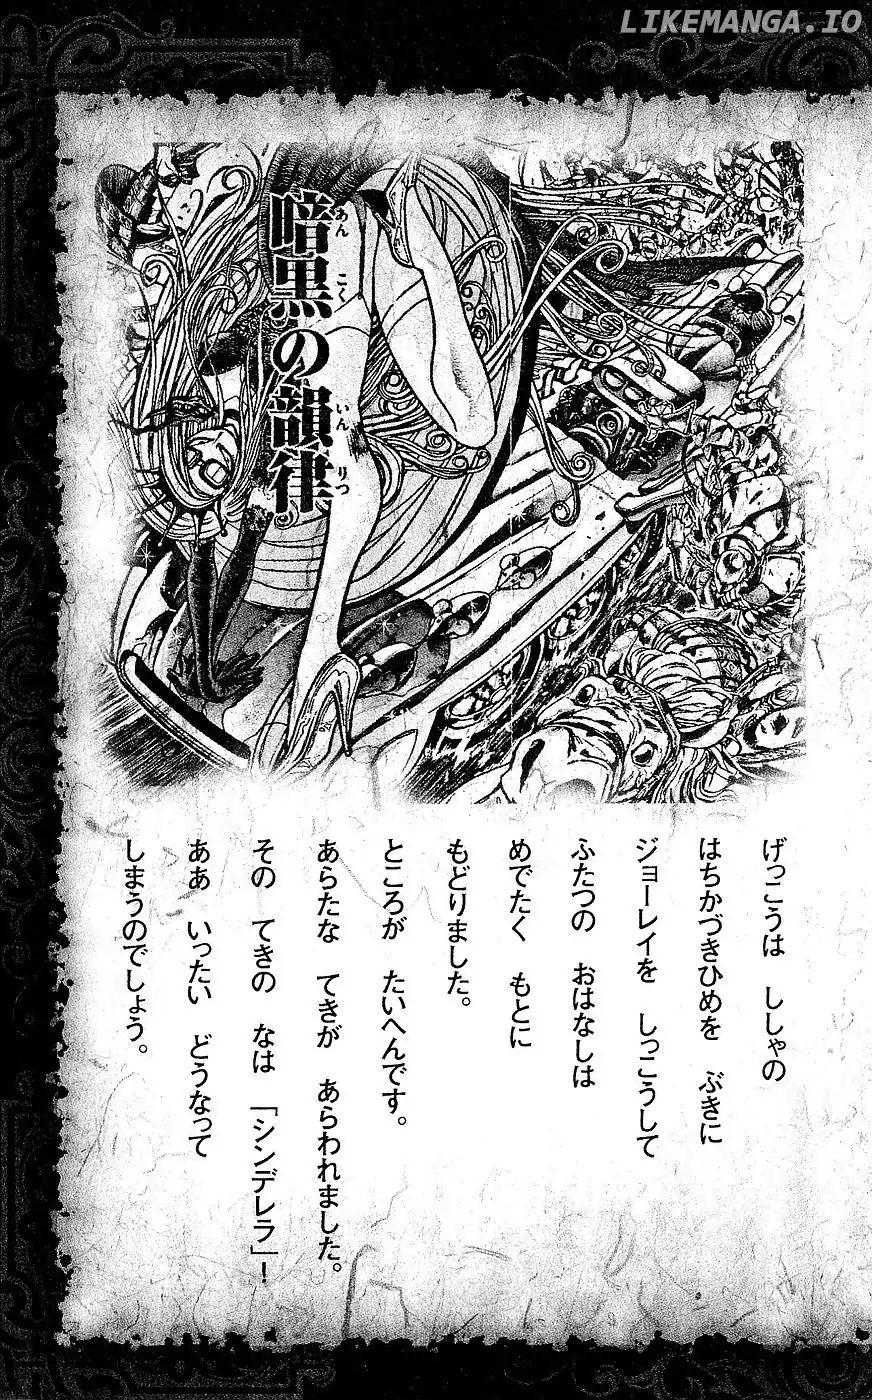 LIKEMANGA.IO
暗黒の韻律
あんこく いんりつ
げっこうは ししゃの
はちかづきひめを ぶきに
ジョーレイを しっこうして
ふたつの おはなしは
めでたく もとに
もどりました。
ところが たいへんです。
あらたな てきが あらわれました。
その てきの なは 「シンデレラ」!
ああ いったい どうなって
しまうのでしょう。